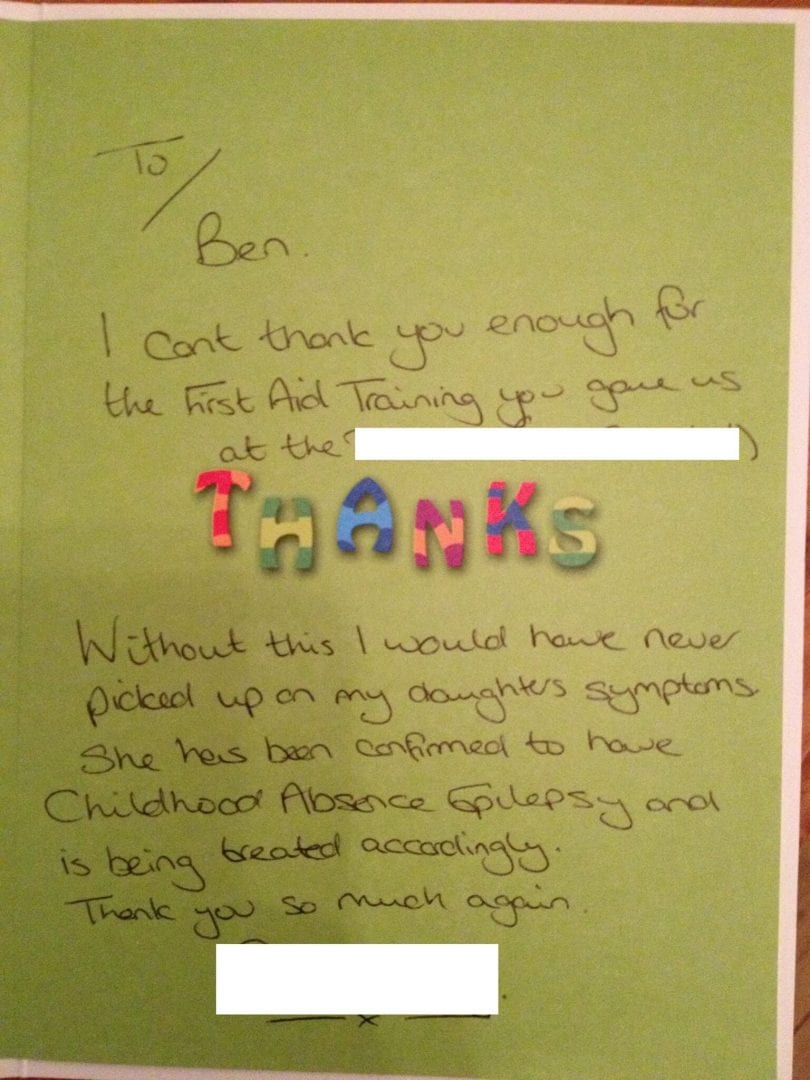 To/
Ben.
I cant thank you enough for
the First Aid Training you gave us
at the )
THANKS
Without this I would have never
picked up on my daughters symptoms.
She has been confirmed to have
Childhood Absence Epilepsy and
is being treated accordingly.
Thank you so much again.
x